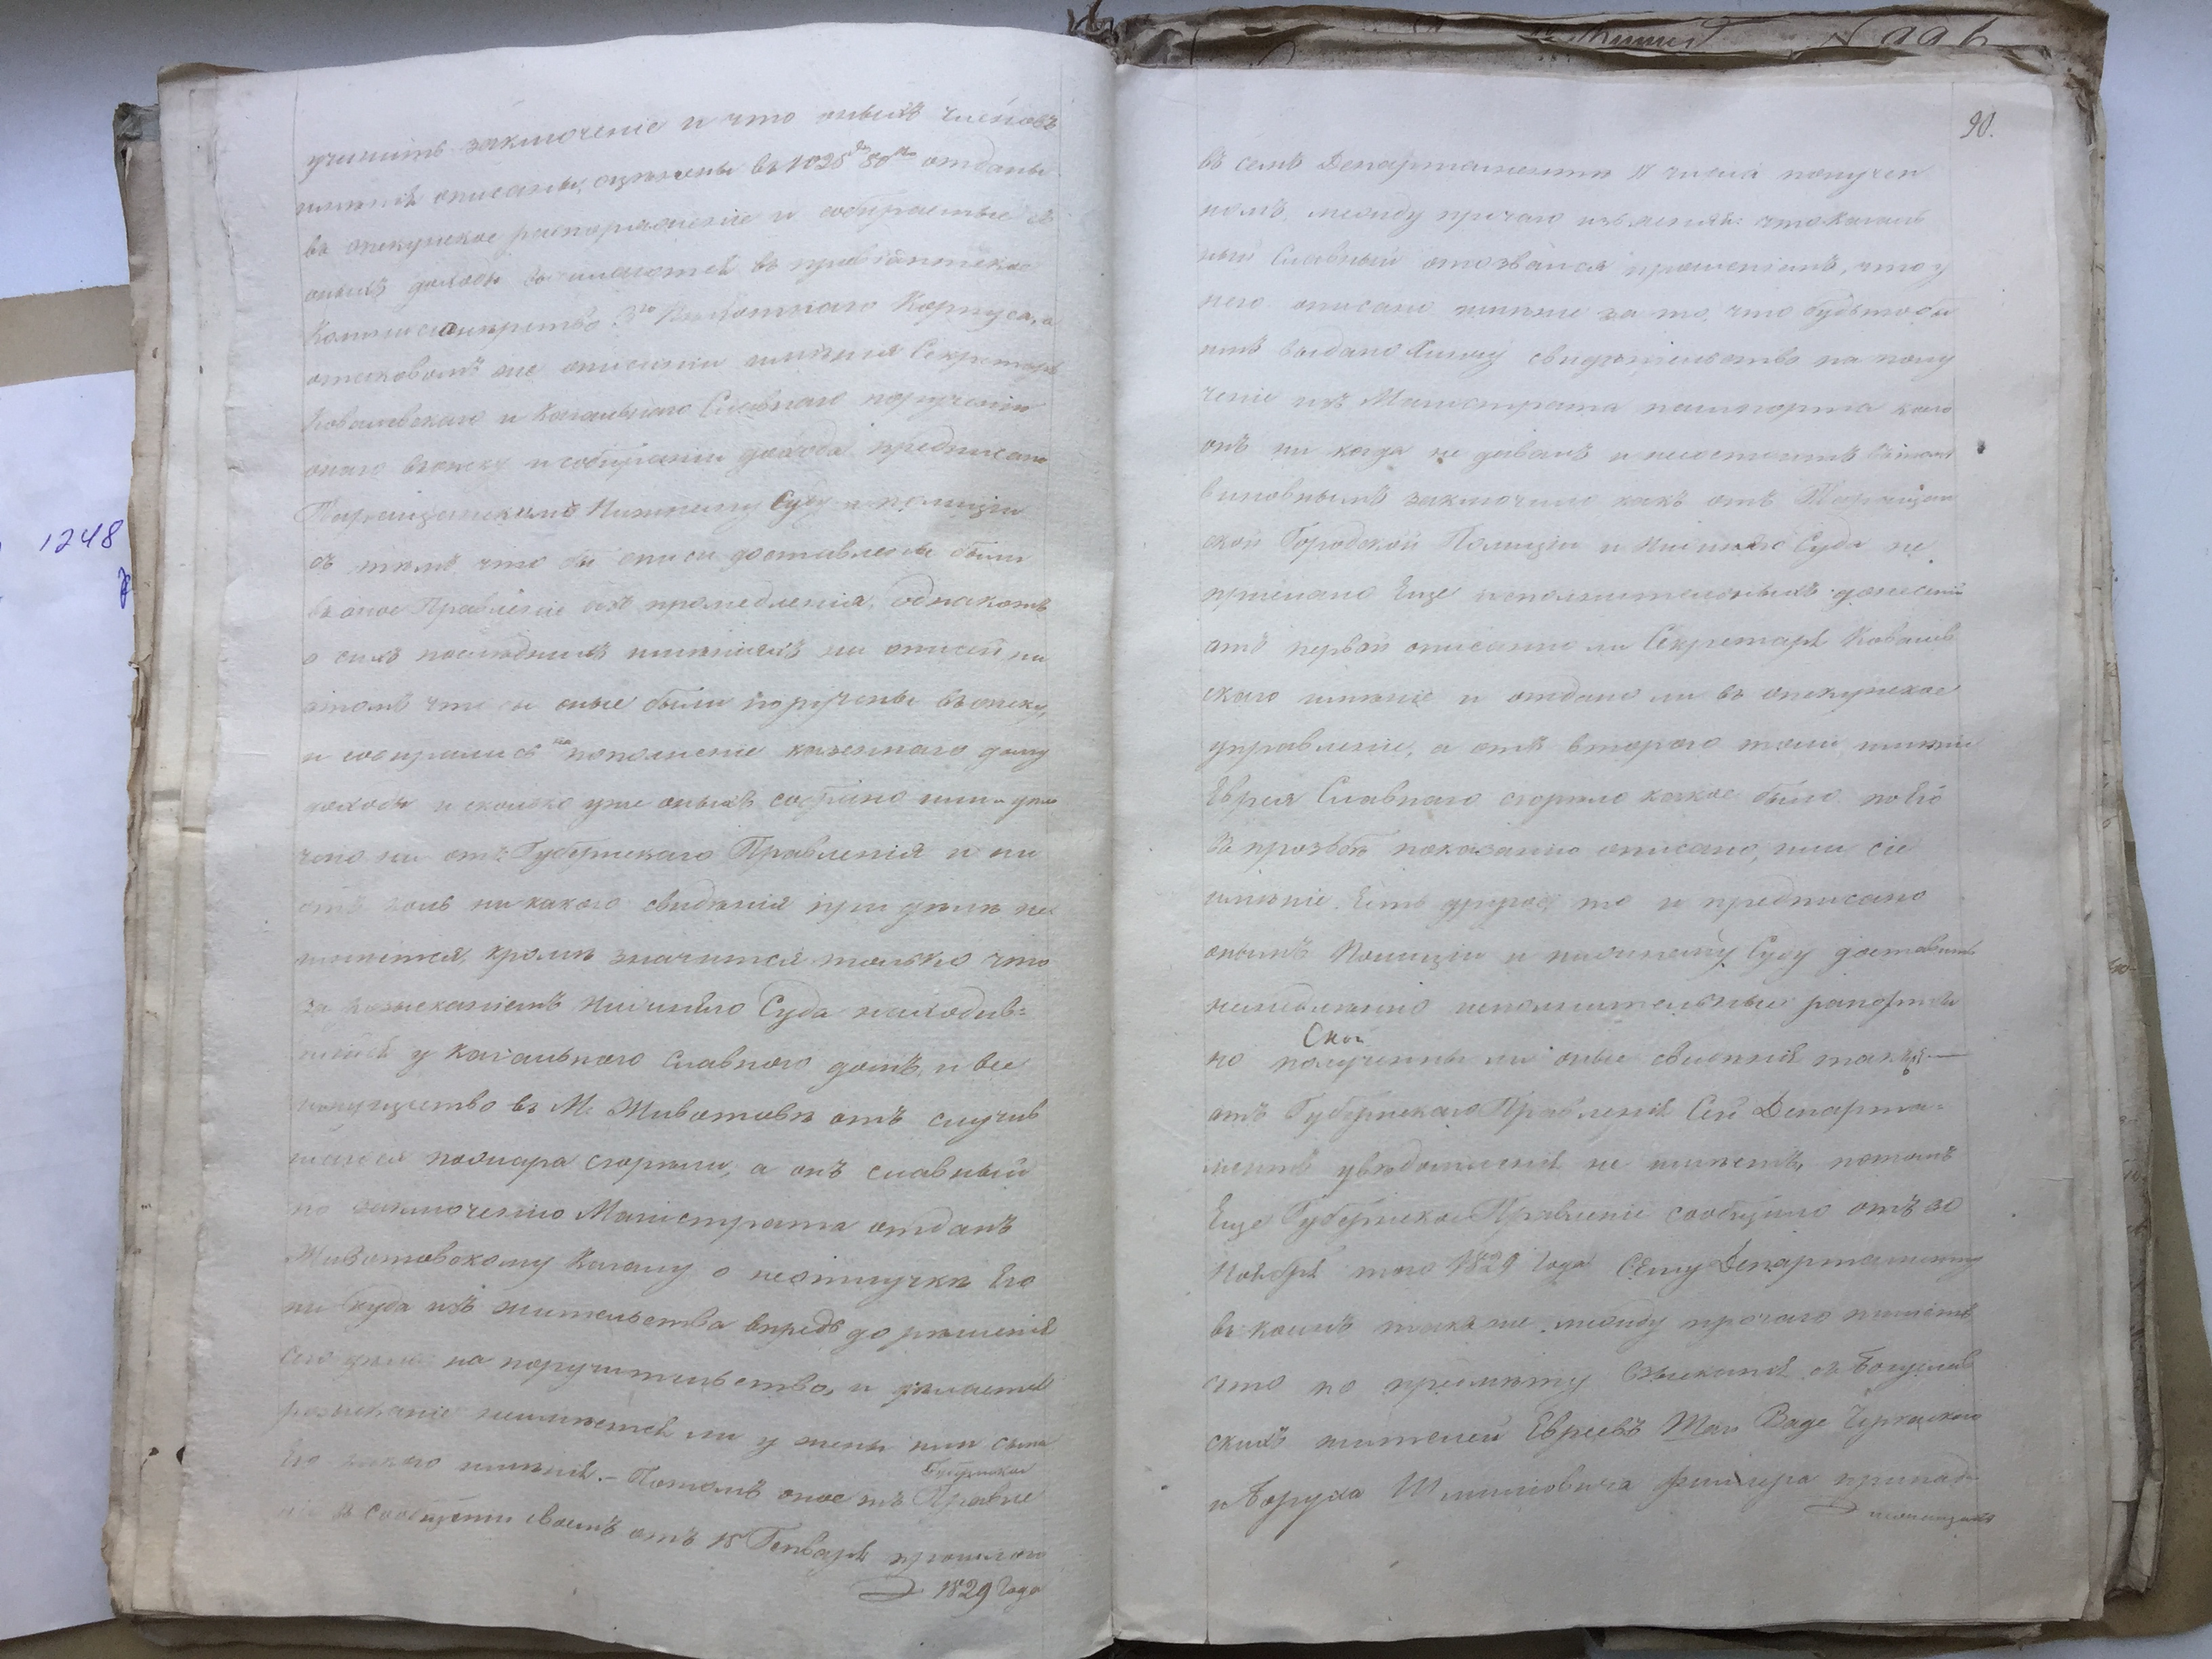 учинить заключеніе и что оныхъ членовъ
имѣніе описаны, оценены въ 1025 ру 80 ко отданы
въ опекунское распоряженіе и собираемые съ
оныхъ доходы въ провіантское
Коммисіонерство 3го Пѣхотнаго Корпуса, о
таковомъ же описаніи имѣнія Секретаря
Ковалевскаго и Кагальнаго Славнаго порученіи
онаго въ опеку и собираніи дохода предписано
Таращанскимъ Нижнему Суду и полиціи
съ тѣмъ что бы описи доставлены были
въ оное Правленіе безъ промедленія, однакожъ
о сихъ последнихъ имѣніяхъ ни описей ни
о томъ что бы оные были поручены въ опеку,
и собирались на пополненіе казеннаго долгу
доходы и сколько уже оныхъ собрано или
ни отъ Губернскаго Правленія и ни
отъ коль никакого свидѣнія при дѣлѣ не
имѣется, кромѣ значится только что
за взысканіемъ Нижняго Суда находив=
шійся у Кагальнаго Славнаго домъ, и все
имущество въ М. Животовѣ отъ случив
шагося пожара сгорѣли, а онъ Славный
по заключенію Магистрата отданъ
Животовскому Кагалу о неотлучкѣ Его
ни куда изъ жительства впредь до рѣшенія
сего дѣла на поручительство, и дѣлается
розысканіе неимѣется ли у жены или сына
Его какого имѣнія. – Потомъ оное жъ Губернское Правле
ніе въ сообщеніи своемъ отъ 18 Генваря прошлаго
1829 Года
90.
въ семъ Департаментѣ 11 числа получен
номъ, между прочаго изъясняя: что Кагаль
ный Славный отозвался прошеніемъ, что у
него описано имѣніе за то, что будьто бы
имъ выдано свидѣтельство на полу
ченіе изъ Магистрата пашпорта коего
онъ ни когда не давалъ и несостоитъ въ томъ
виновнымъ заключило какъ отъ Таращан
ской Городской Полиціи и Нижняго Суда не
прислано Еще исполнительныхъ донесеній
отъ первой описанно ли Секретаря Ковалев
скаго имѣніе и отдано ли въ опекунское
управленіе, а отъ втораго толи имѣніе
Еврея Славнаго сгорѣло какое было по Его
въ прозьбѣ показанію описано, или сіе
имѣніе Есть другое, то и предписано
онымъ Полиціи и нижнему Суду доставить
немедленно исполнительные рапорты
но полученны ли оные свѣденія
отъ Губернскаго Правленія Сей Департа=
ментъ увѣдомленія не имѣетъ, потомъ
Еще Губернское Правленіе сообщило отъ 30
Ноября того 1829 года Сему Департаменту
въ коемъ также между прочаго пишетъ
что по предмету взысканія съ Богуслав
скихъ жителей Евреевъ
и Боруха Шмиловича Фишера принад=
лежащихъ
1248